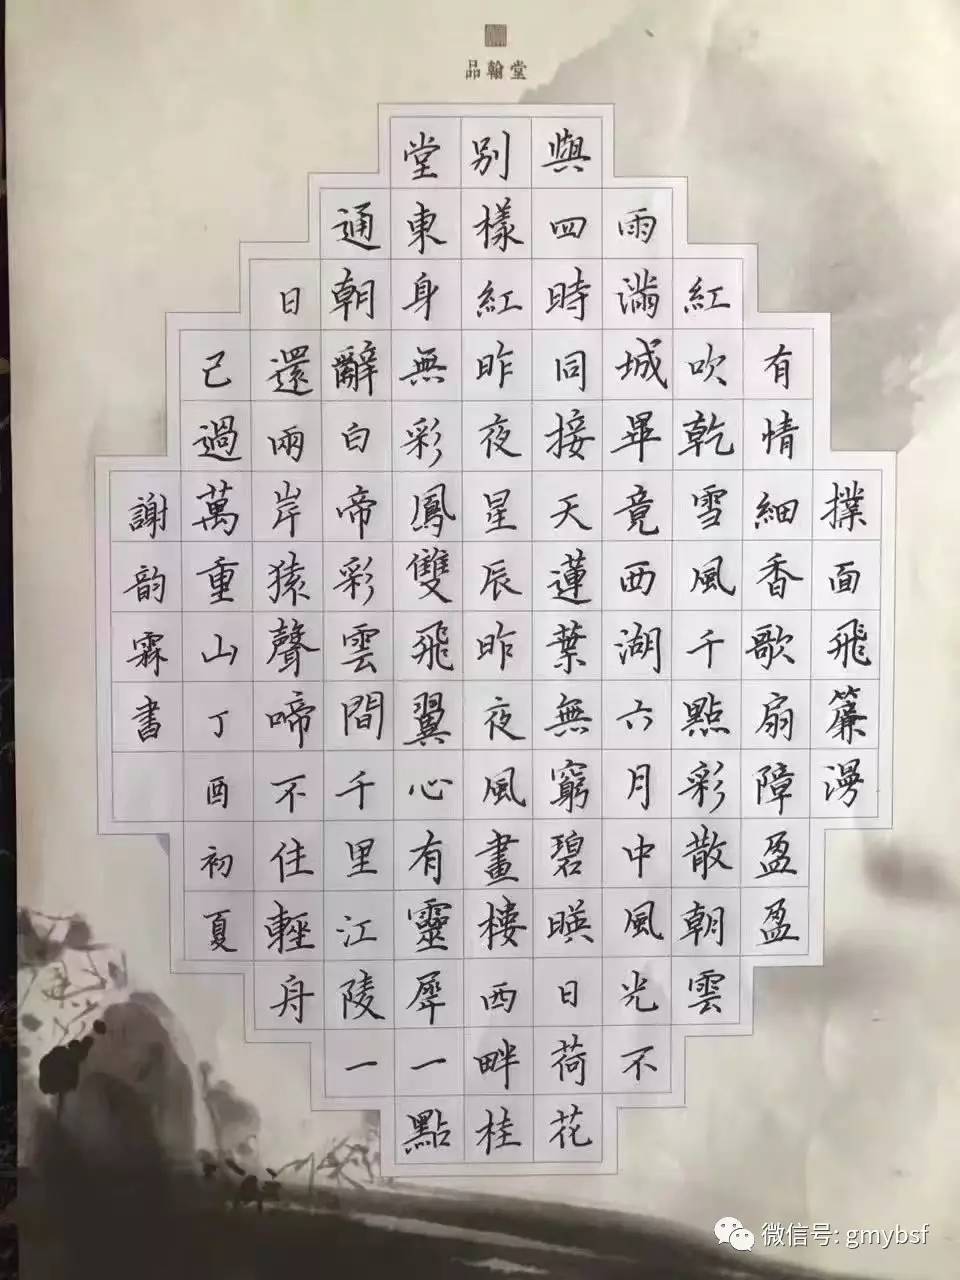 品翰堂
撲面飛簾漫
有情細香歌扇障盈盈
紅吹乾雪風千點彩散朝雲
雨滿城畢竟西湖六月中風光不
與四時同接天蓮葉無窮碧暎日荷花
别樣紅昨夜星辰昨夜風畫樓西畔桂
堂東身無彩鳳雙飛翼心有靈犀一點
通朝辭白帝彩雲間千里江陵一
日還兩岸猿聲啼不住輕舟
已過萬重山丁酉初夏
謝韵霖書
微信号: gmybsf